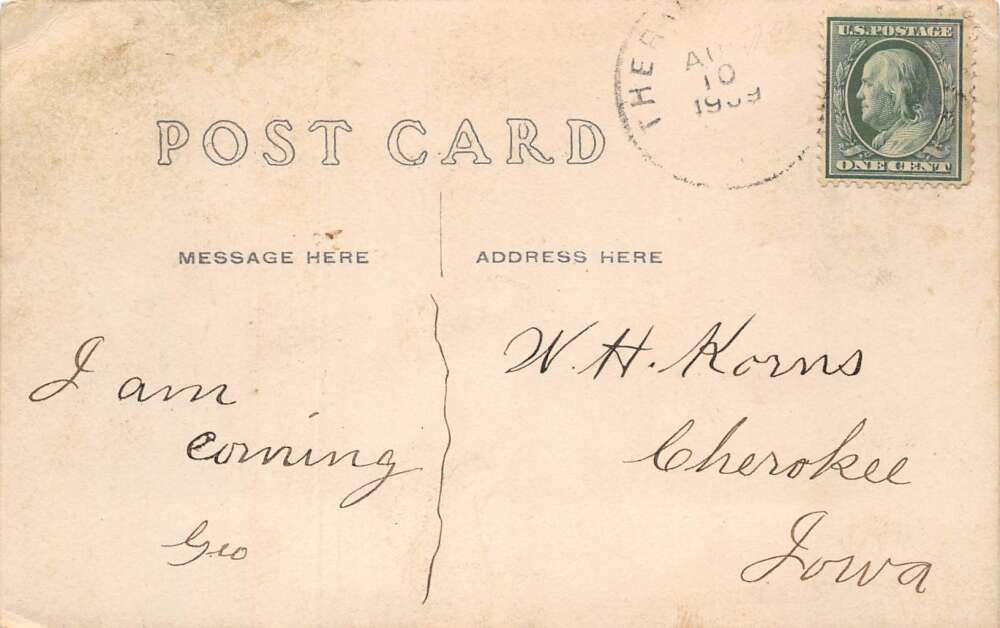 U.S. POSTAGE
ONE CENT
10
1909
POST CARD
MESSAGE HERE
ADDRESS HERE
I am
coming
Geo
W. H. Korns
Cherokee
Iowa